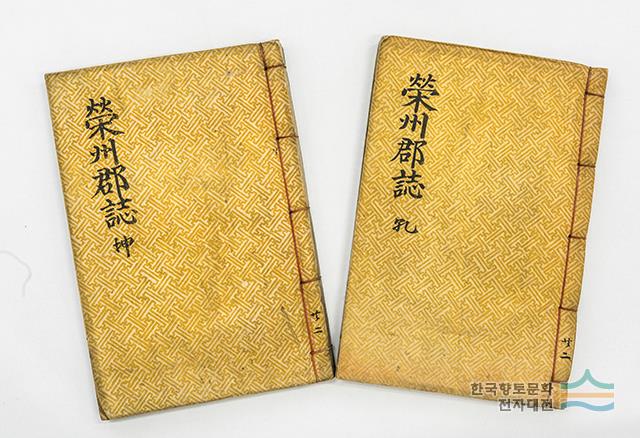 榮州郡誌
坤
共二
榮州郡誌
乾
共二
한국향토문화
전자대전